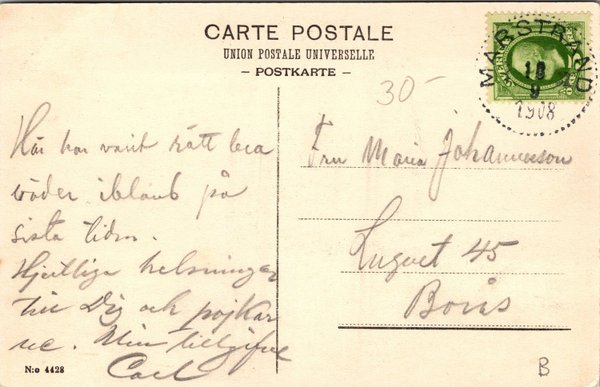 CARTE POSTALE
UNION POSTALE UNIVERSELLE
– POSTKARTE –
MARSTRAND
18
9
1908
30-
Här har varit rätt bra
väder ibland på
sista tiden.
Hjertliga helsningar
till Dig och pojkar
ne. Din tillgifne
Carl
Fru Maria Johannesson
Lugnet 45
Borås
N:o 4428
B